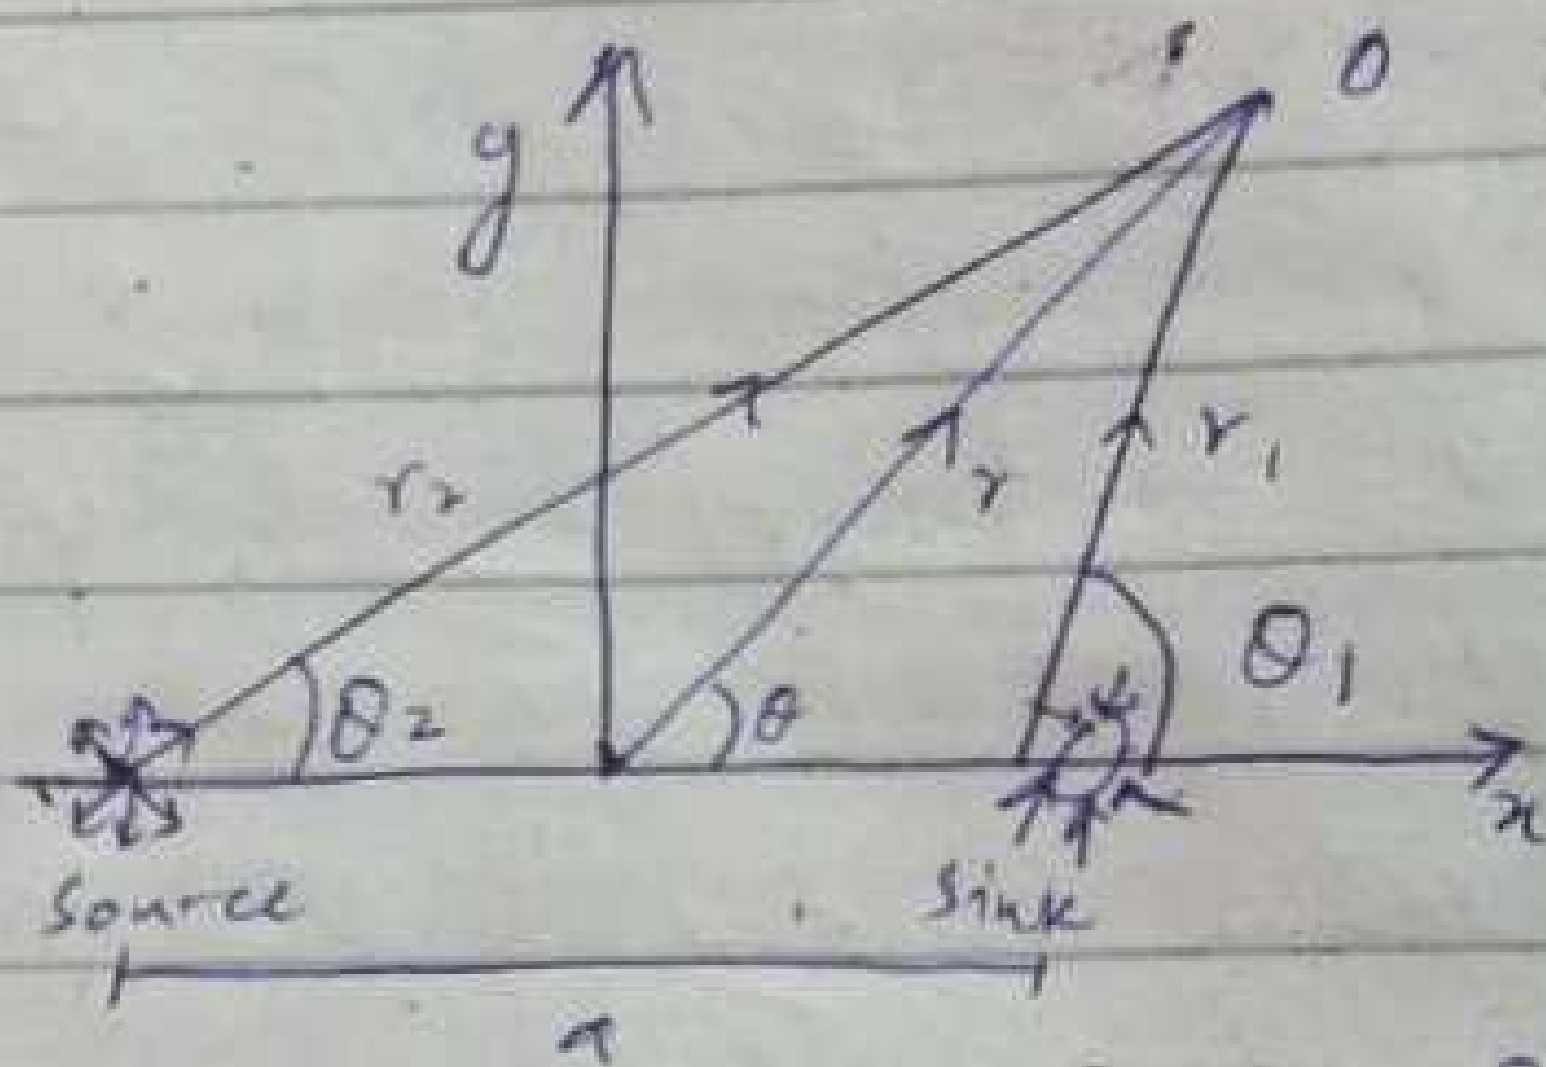 O
y
r₂
r
r₁
θ₂
θ
θ₁
x
Source
Sink